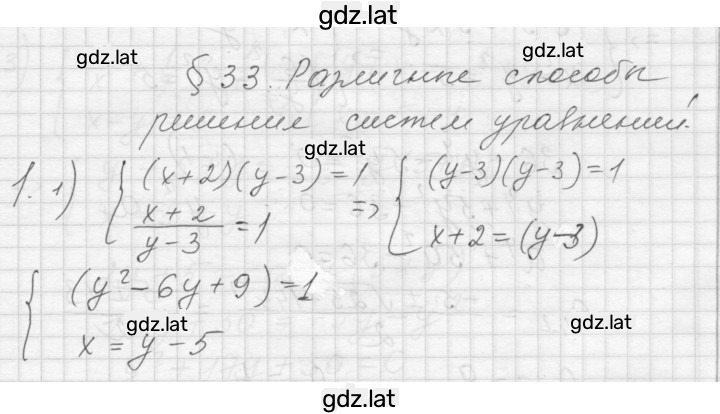 gdz.lat
gdz.lat
gdz.lat
§ 33. Различные способы
решения систем уравнений.
gdz.lat
1. 1) { (x+2)(y-3)=1 => { (y-3)(y-3)=1
x+2 / y-3 = 1
x+2=(y-3)
{ (y²-6y+9)=1
gdz.lat
gdz.lat
x=y-5
gdz.lat